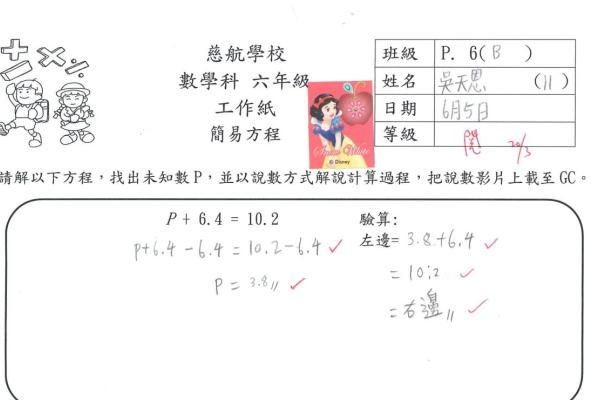 慈航學校
數學科 六年級
工作紙
簡易方程
班級 P. 6( B )
姓名 吳天恩 (11)
日期 6月5日
等級 閱 20/3
Snow White
© Disney
請解以下方程，找出未知數 P，並以說數方式解說計算過程，把說數影片上載至 GC。
P + 6.4 = 10.2
P+6.4 - 6.4 = 10.2 - 6.4 ✓
P = 3.8 // ✓
驗算:
左邊= 3.8+6.4 ✓
= 10.2 ✓
= 右邊 // ✓